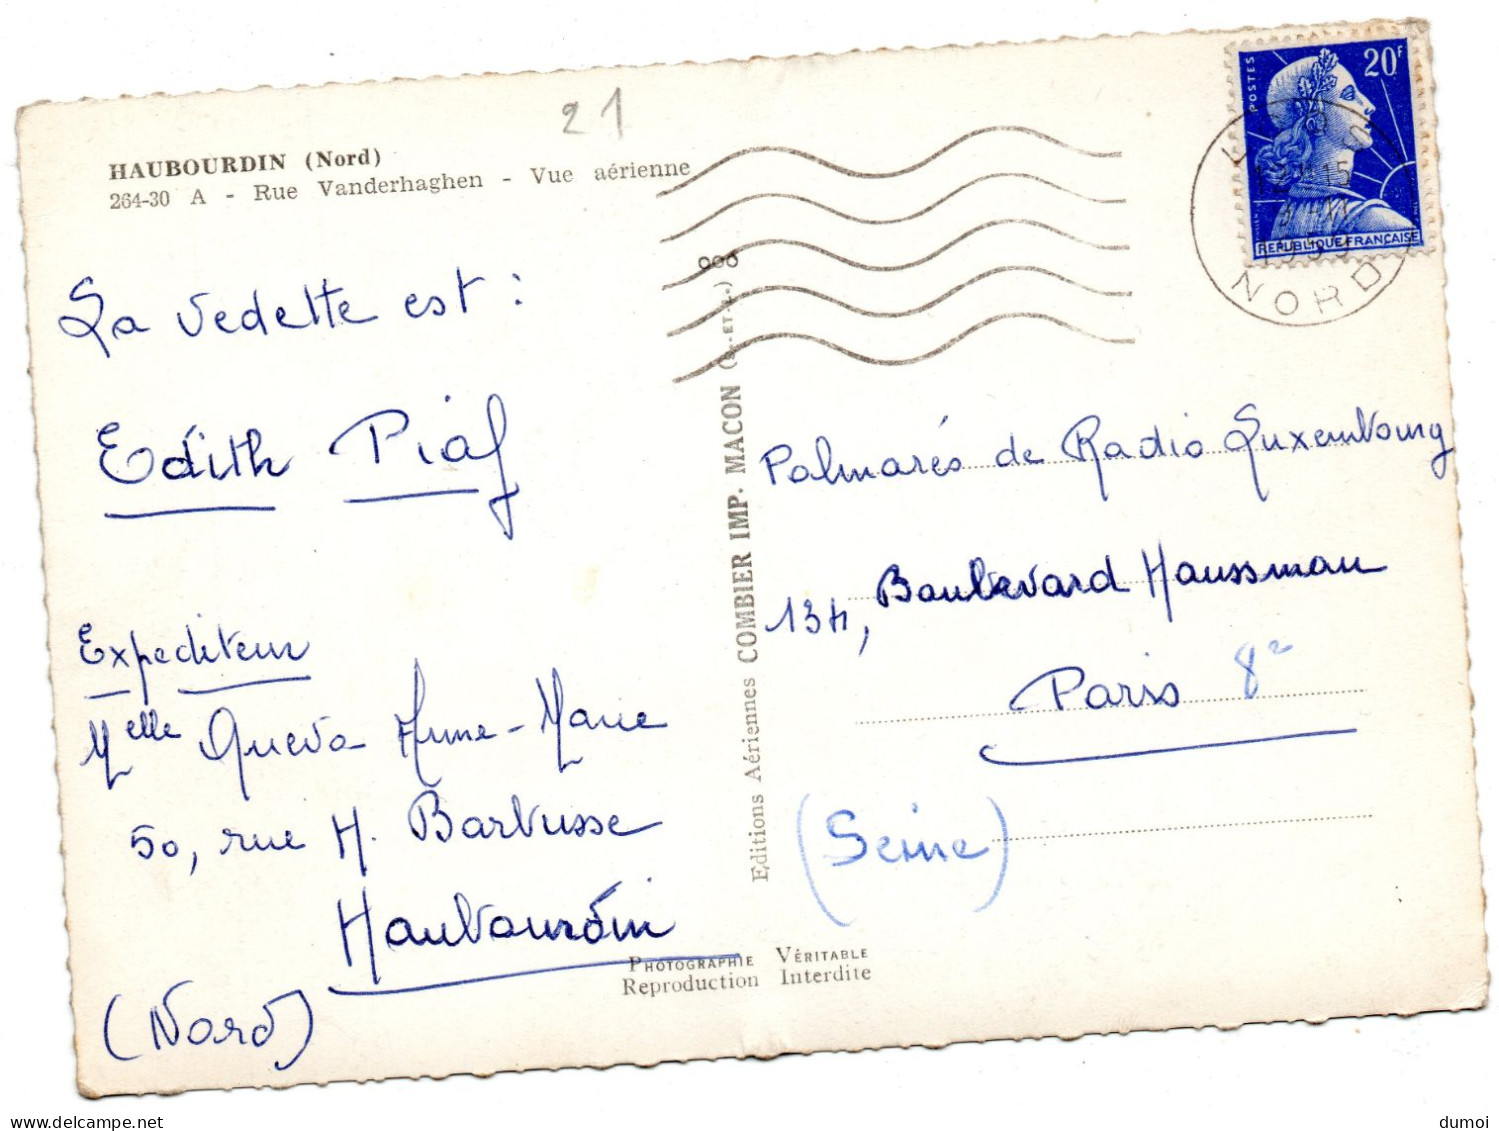 21
HAUBOURDIN (Nord)
264-30 A - Rue Vanderhaghen - Vue aérienne
La vedette est :
Edith Piaf
Expediteur
Melle Queva Anne-Marie
50, rue H. Barbusse
Haubourdin
(Nord)
Editions Aériennes COMBIER IMP. MACON (S.-ET-L.)
POSTES
20F
REPUBLIQUE FRANÇAISE
NORD
Palmarés de Radio Luxembourg
134, Boulevard Haussman
Paris 8e
(Seine)
PHOTOGRAPHIE VÉRITABLE
Reproduction Interdite
delcampe.net
dumoi